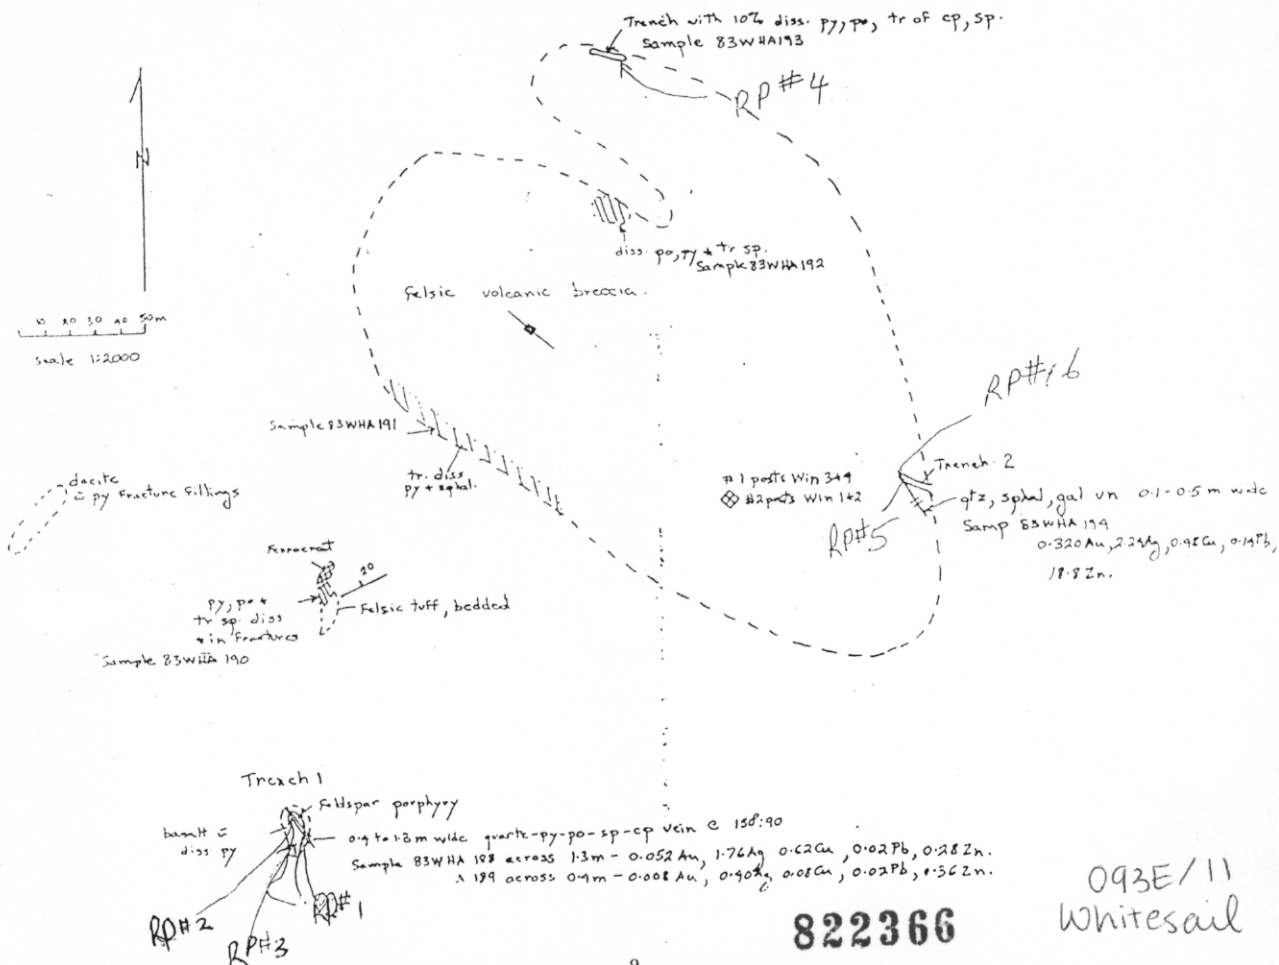 Trench with 10% diss. py, po, tr of cp, sp.
Sample 83WHA193
RP#4
N
diss. po, py + tr sp.
Sample 83WHA192
Felsic volcanic breccia.
10 20 30 40 50m
Scale 1:2000
RP#
Sample 83WHA191
tr. diss
py + sphal.
dacite
py fracture fillings
#1 posts Win 3+4
#2 posts Win 1+2
Trench 2
qtz, sphal, gal vn 0.1-0.5 m wide
Samp 83WHA 194
0.320 Au, 2.24 Ag, 0.48 Cu, 0.14 Pb,
18.8 Zn.
RP#5
Ferrocrete
20
py, po +
tr sp diss
+ in fractures
Felsic tuff, bedded
Sample 83WHA 190
Trench 1
Feldspar porphyry
basalt
diss py
0.4 to 1.3 m wide quartz-py-po-sp-cp vein @ 158:90
Sample 83WHA 188 across 1.3m - 0.052 Au, 1.76 Ag 0.62 Cu, 0.02 Pb, 0.28 Zn.
189 across 0.4m - 0.008 Au, 0.40 Ag, 0.08 Cu, 0.02 Pb, 0.36 Zn.
RP#2
RP#3
RP#1
093E/11
Whitesail
822366